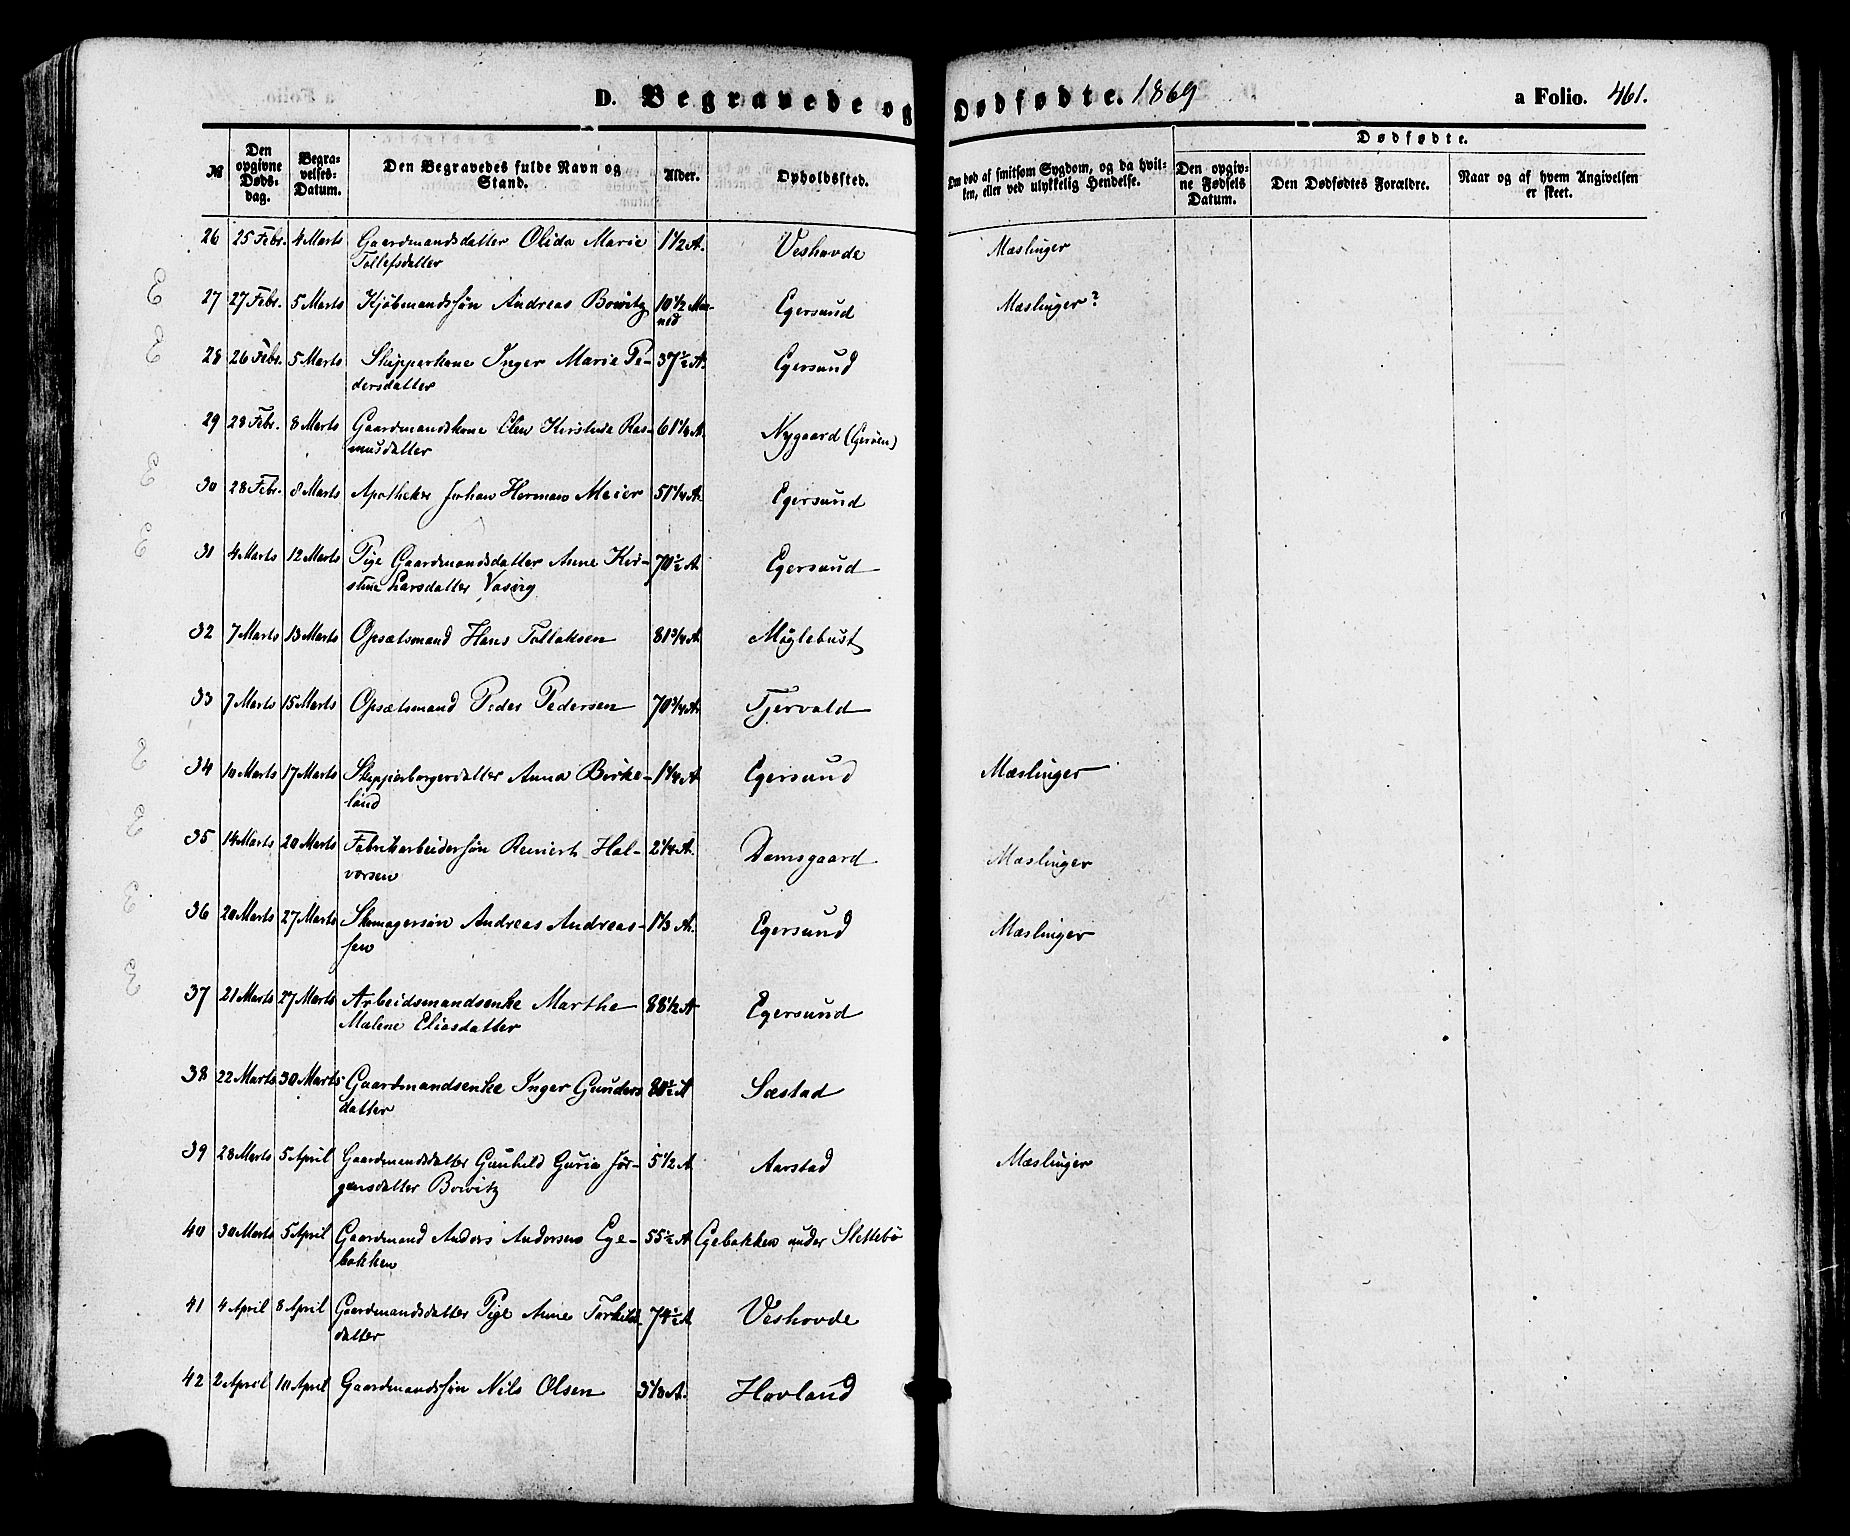 D. Begravede og Dødfødte. 1869 a Folio. 461.
№ Den opgivne Døds-dag. Begra-velses-Datum. Den Begravedes fulde Navn og Stand. Alder. Opholdssted. Om død af smitsom Sygdom, og da hvil-ken, eller ved ulykkelig Hendelse. Dødfødte. Den opgiv-ne Fødsels Datum. Den Dødfødtes Forældre. Naar og af hvem Angivelsen er skeet.
26 25 Febr. 4 Marts Gaardmandsdatter Olida Marie 1 1/2 A. Veshovde Mæslinger
Tollefsdatter
27 27 Febr. 5 Marts Kjøbmandssøn Andreas Bowitz 10 1/2 Maa- Egersund Mæslinger?
ned
28 26 Febr. 5 Marts Skipperkone Inger Marie Pe- 37 1/2 A. Egersund
dersdatter
29 28 Febr. 8 Marts Gaardmandskone Elen Kirstine Ras- 61 1/4 A. Nygaard (Gerøen)
musdatter
30 28 Febr. 8 Marts Apotheker Johan Herman Meier 51 1/4 A. Egersund
31 4 Marts 12 Marts Pige Gaardmandsdatter Anne Kir- 70 1/2 A Egersund
stine Larsdatter
32 7 Marts 13 Marts Opsætsmand Hans Tollaksen 81 3/4 A Møglebust
33 7 Marts 15 Marts Opsætsmand Peder Pedersen 70 3/4 A. Tjervald
34 10 Marts 17 Marts Skipperborgerdatter Anna Birke- 1 1/4 A Egersund Mæslinger
land
35 14 Marts 20 Marts Fabrikarbeidersøn Reinert Hal- 2 1/4 A. Damsgaard Mæslinger
vorsen
36 20 Marts 27 Marts Skomagersøn Andreas Andreas- 1 1/3 A. Egersund Mæslinger
sen
37 21 Marts 27 Marts Arbeidsmandsenke Marthe 88 1/2 A Egersund
Malene Eliasdatter
38 22 Marts 30 Marts Gaardmandsenke Inger Gunders 80 1/2 A Sæstad
datter
39 28 Marts 5 April Gaardmandsdatter Gunhild Guria Jør- 5 1/2 A Aarstad Mæslinger
gensdatter Bowitz
40 30 Marts 5 April Gaardmand Anders Andersen Ege- 55 1/2 A Egebakken under Slettebø
bakken
41 4 April 8 April Gaardmandsdatter Pige Anne Torkild- 74 1/2 A Veshovde
datter
42 2 April 10 April Gaardmandssøn Nils Olsen 3 1/3 A. Hovland